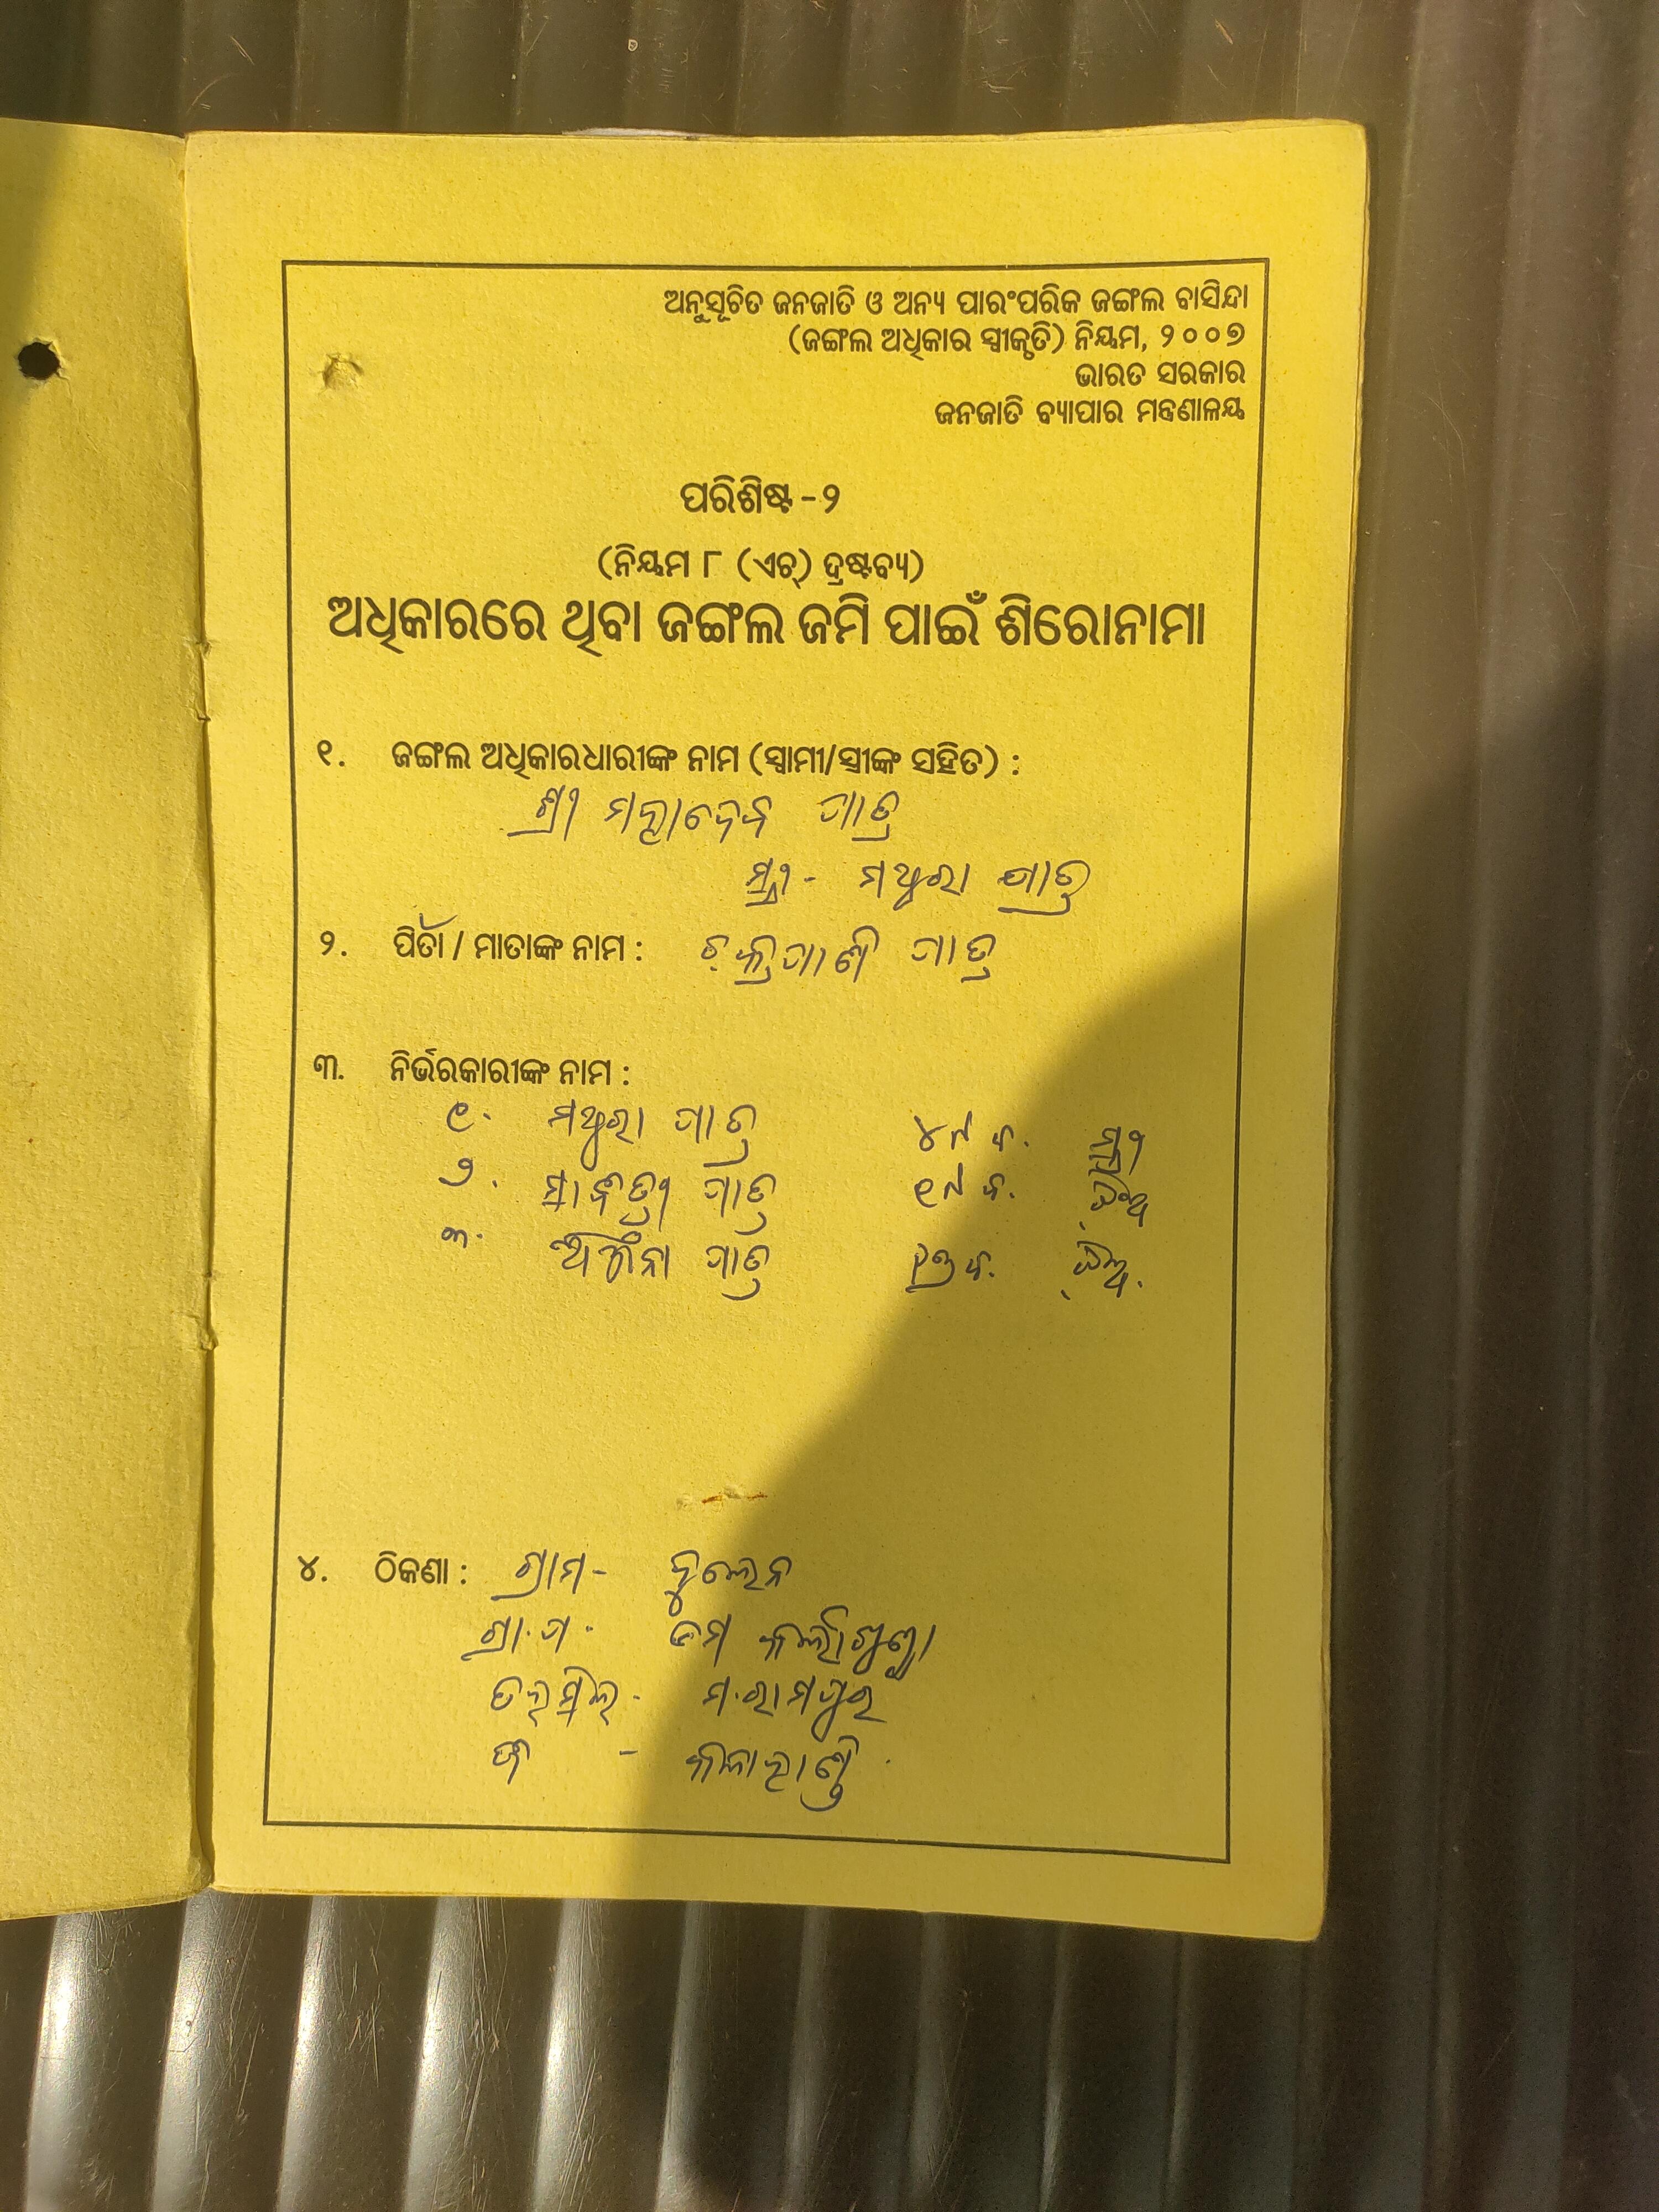 ଅନୁସୂଚିତ ଜନଜାତି ଓ ଅନ୍ୟ ପାରଂପରିକ ଜଙ୍ଗଲ ବାସିନ୍ଦା
(ଜଙ୍ଗଲ ଅଧିକାର ସ୍ୱୀକୃତି) ନିୟମ, ୨୦୦୭
ଭାରତ ସରକାର
ଜନଜାତି ବ୍ୟାପାର ମନ୍ତ୍ରଣାଳୟ
ପରିଶିଷ୍ଟ - ୨
(ନିୟମ ୮ (ଏଚ୍) ଦ୍ରଷ୍ଟବ୍ୟ)
ଅଧିକାରରେ ଥିବା ଜଙ୍ଗଲ ଜମି ପାଇଁ ଶିରୋନାମା
୧. ଜଙ୍ଗଲ ଅଧିକାରଧାରୀଙ୍କ ନାମ (ସ୍ୱାମୀ/ସ୍ତ୍ରୀଙ୍କ ସହିତ) :
ଶ୍ରୀ ମହାଦେବ ପାତ୍ର
ସ୍ତ୍ରୀ - ମଥୁରା ପାତ୍ର
୨. ପିତା / ମାତାଙ୍କ ନାମ : ଚକ୍ରପାଣି ପାତ୍ର
୩. ନିର୍ଭରକାରୀଙ୍କ ନାମ :
୧. ମଥୁରା ପାତ୍ର ବ. ସ୍ତ୍ରୀ
୨. ସାବିତ୍ରୀ ପାତ୍ର ବ. ଝିଅ
୩. ପାତ୍ର ବ. ଝିଅ.
୪. ଠିକଣା : ଗ୍ରାମ -
ଗ୍ରା.ପ.
ତହସିଲ - ମ.ରାମପୁର
ଜି - କଳାହାଣ୍ଡି